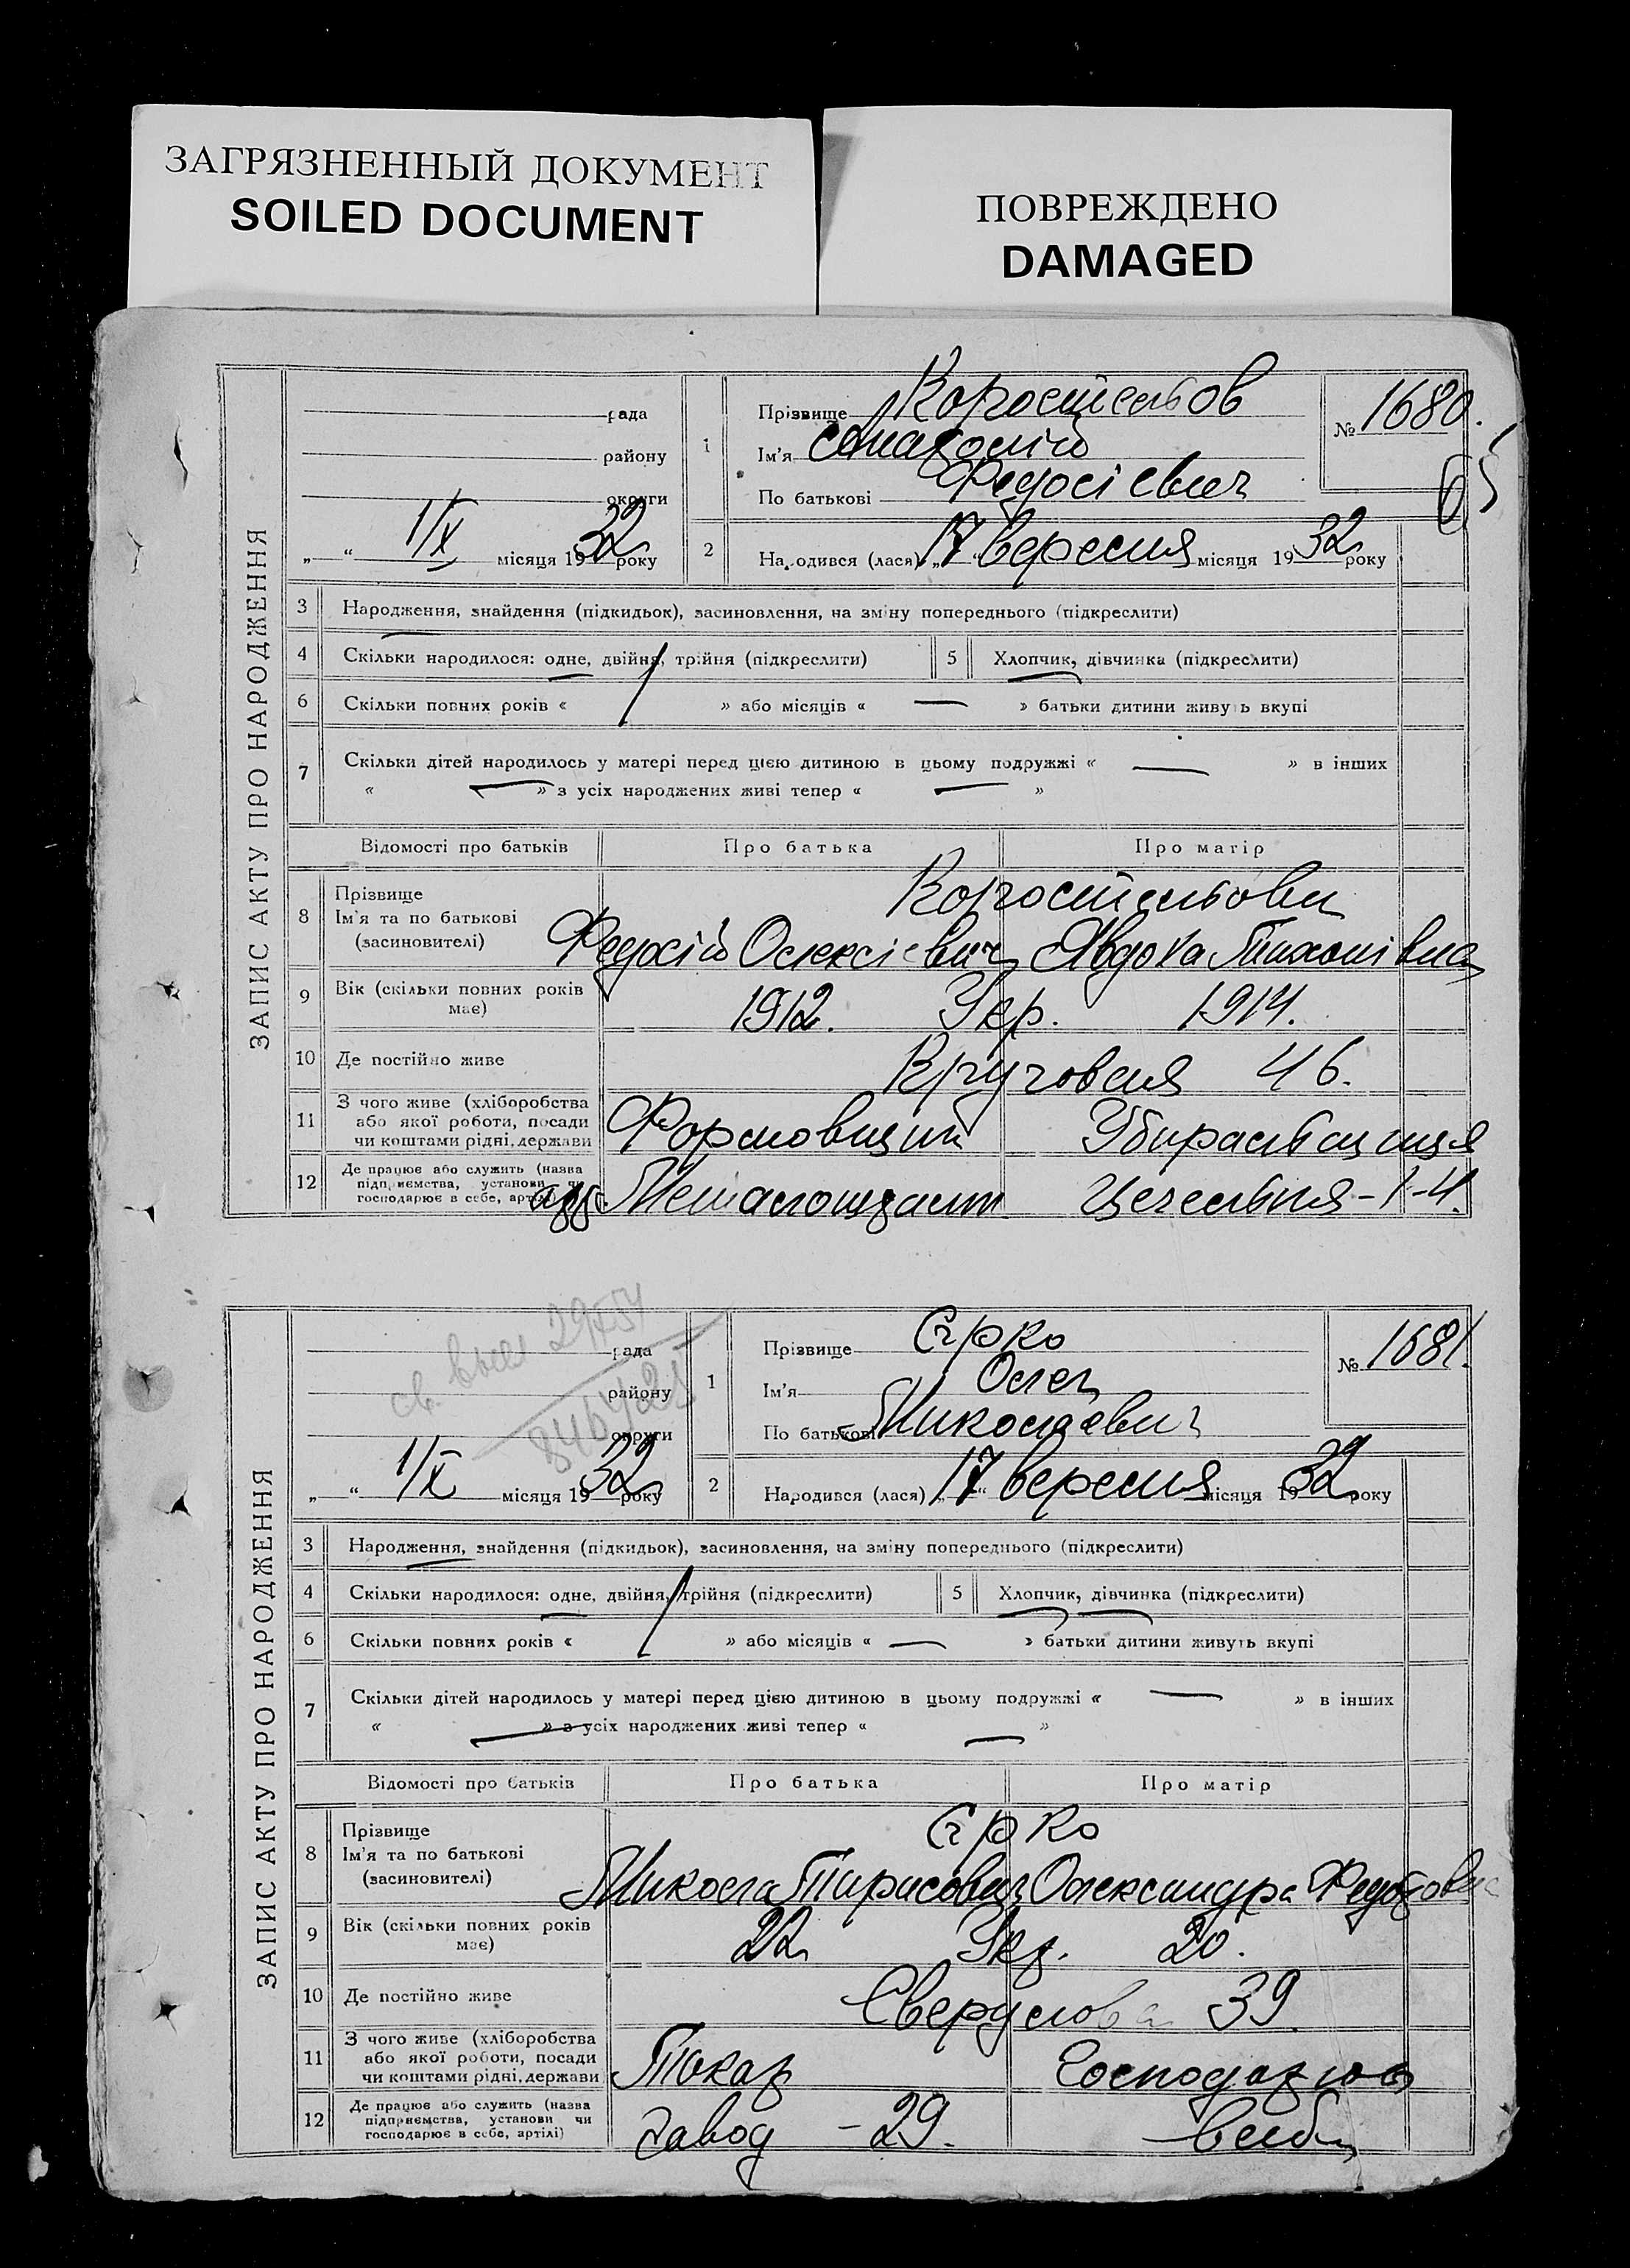 ЗАГРЯЗНЕННЫЙ ДОКУМЕНТ
SOILED DOCUMENT
ПОВРЕЖДЕНО
DAMAGED
ЗАПИС АКТУ ПРО НАРОДЖЕННЯ
рада
району
округи
„ “ 1/X місяця 1932 року
1
Прізвище Коростельов
Ім'я Анатолій
По батькові Федосієвич
№ 1680.
2
Народився (лася) „17“ вересня місяця 1932 року
3 Народження, знайдення (підкидьок), засиновлення, на зміну попереднього (підкреслити)
4 Скільки народилося: одне, двійня, трійня (підкреслити) 5 Хлопчик, дівчинка (підкреслити)
6 Скільки повних років « » або місяців « — » батьки дитини живуть вкупі
7 Скільки дітей народилось у матері перед цією дитиною в цьому подружжі « — » в інших
« — » з усіх народжених живі тепер « — »
Відомості про батьків Про батька Про матір
8 Прізвище Коростельови
Ім'я та по батькові
(засиновителі) Федосій Олексієвич Явдоха Тихонівна
9 Вік (скільки повних років має) 1912. Укр. 1914.
10 Де постійно живе Кругова 46.
11 З чого живе (хліборобства або якої роботи, посади чи коштами рідні, держави Формовщик Убиральниця
12 Де працює або служить (назва підприємства, установи чи господарює в себе, артілі) Цегельня-1-4.
ЗАПИС АКТУ ПРО НАРОДЖЕННЯ
рада
району
округи
„ “ 1/X місяця 1932 року
1
Прізвище Сірко
Ім'я Олег
По батькові Миколаєвич
№ 1681.
2
Народився (лася) „17“ вересня місяця 1932 року
3 Народження, знайдення (підкидьок), засиновлення, на зміну попереднього (підкреслити)
4 Скільки народилося: одне, двійня, трійня (підкреслити) 5 Хлопчик, дівчинка (підкреслити)
6 Скільки повних років « » або місяців « — » батьки дитини живуть вкупі
7 Скільки дітей народилось у матері перед цією дитиною в цьому подружжі « — » в інших
« — » з усіх народжених живі тепер « — »
Відомості про батьків Про батька Про матір
8 Прізвище Сірко
Ім'я та по батькові
(засиновителі) Микола Тарасович Олександра Федотовна
9 Вік (скільки повних років має) 22 Укр. 20.
10 Де постійно живе Свердлова 39.
11 З чого живе (хліборобства або якої роботи, посади чи коштами рідні, держави Токар Господарює
12 Де працює або служить (назва підприємства, установи чи господарює в себе, артілі) Завод - 29. в себе